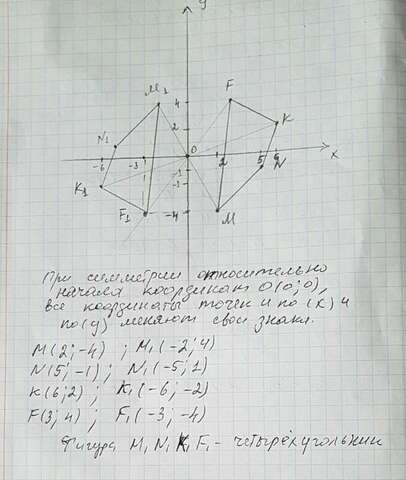 y
M₁
4
F
2
K
N₁
O
-6
-3
2
5
6
x
-1
N
K₁
F₁
-4
M
При симметрии относительно
начала координат O(0;0),
все координаты точек и по (x) и
по (y) меняют свои знаки.
M(2;-4) ; M₁(-2;4)
N(5;-1) ; N₁(-5;1)
K(6;2) ; K₁(-6;-2)
F(3;4) ; F₁(-3;-4)
Фигура M₁N₁K₁F₁ - четырёхугольник